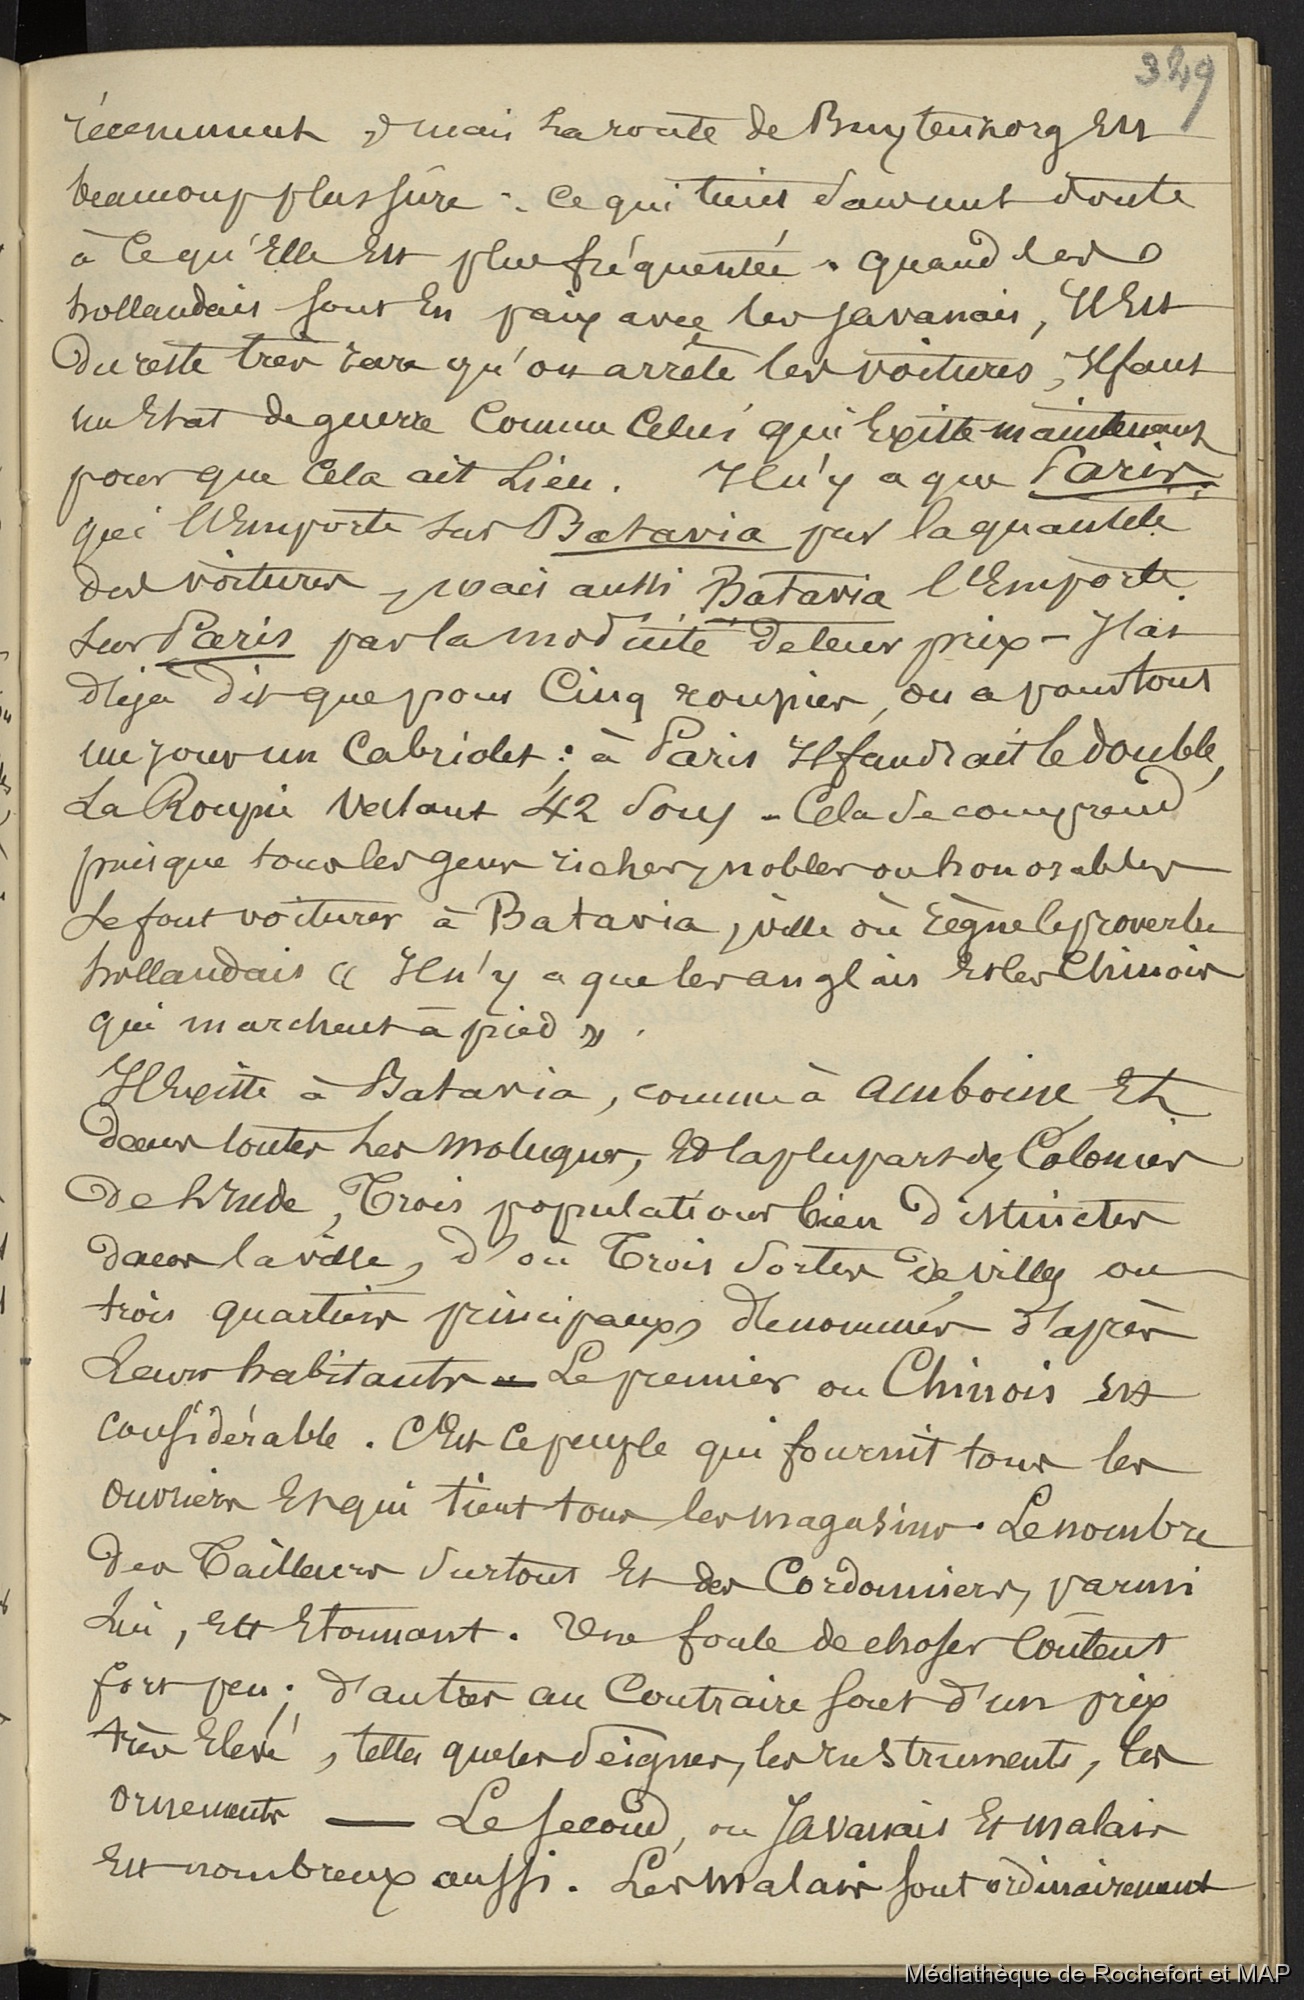 349
récemment, mais la route de Buytenzorg Est
beaucoup plus sûre - ce qui tient souvent doute
à ce qu'Elle Est plus fréquentée. quand les
hollandais sont En paix avec les javanais, Il Est
du reste très rare qu'on arrête les voitures, Il faut
un Etat de guerre Comme Celui qui Existe maintenant
pour que Cela ait Lieu. Il n'y a que Paris
qui l'Emporte sur Batavia par la quantité
des voitures, mais aussi Batavia l'Emporte
sur Paris par la modicité de leur prix - J'ai
déjà dit que pour Cinq roupies, on a pour tout
un jour un Cabriolet ; à Paris Il faudrait le double,
La Roupie Valant 42 Sous - Cela se comprend
puisque tous les gens riches, nobles ou honorables
se font voiturer à Batavia, ville où règne le proverbe
hollandais « Il n'y a que les anglais Et les Chinois
qui marchent à pied ».
Il Existe à Batavia, comme à Amboine Et
dans toutes Les moluques, Et la plupart des Colonies
de L'Inde, Trois populations bien distinctes
dans la ville, d'où Trois Sortes de villes ou
trois quartiers principaux, dénommés d'après
Leurs habitants - Le premier ou Chinois Est
considérable. C'Est ce peuple qui fournit tous les
ouvriers Et qui tient tous les magasins. Le nombre
des Tailleurs Surtout Et des Cordonniers, parmi
Lui, Est Etonnant. Une foule de choses Coûtent
fort peu ; d'autres au Contraire sont d'un prix
très Elevé, telles que les Peignes, les Instruments, les
ornements — Le second, ou Javanais Et malais
Est nombreux aussi. Les malais sont ordinairement
Médiathèque de Rochefort et MAP